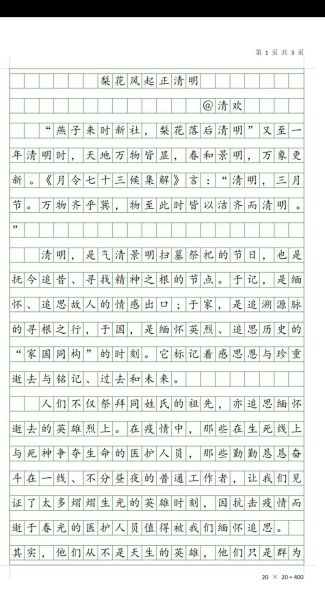 第 1 页 共 3 页
梨花风起正清明
@清欢
“燕子来时新社，梨花落后清明”又至一
年清明时，天地万物皆显，春和景明，万象更
新。《月令七十三候集解》言：“清明，三月
节。万物齐乎巽，物至此时皆以洁齐而清明。
”
清明，是气清景明扫墓祭祀的节日，也是
抚今追昔、寻找精神之根的节点。于记，是缅
怀、追思故人的情感出口；于家，是追溯源脉
的寻根之行，于国，是缅怀英烈、追思历史的
“家国同构”的时刻。它标记着感思恩与珍重
逝去与铭记、过去和未来。
人们不仅祭拜同姓氏的祖先，亦追思缅怀
逝去的英雄烈上。在疫情中，那些在生死线上
与死神争夺生命的医护人员，那些勤勤恳恳奋
斗在一线、不分昼夜的普通工作者，让我们见
证了太多熠熠生光的英雄时刻，因抗击疫情而
逝于春光的医护人员值得被我们缅怀追思。
其实，他们从不是天生的英雄，他们只是群为
20 × 20 = 400